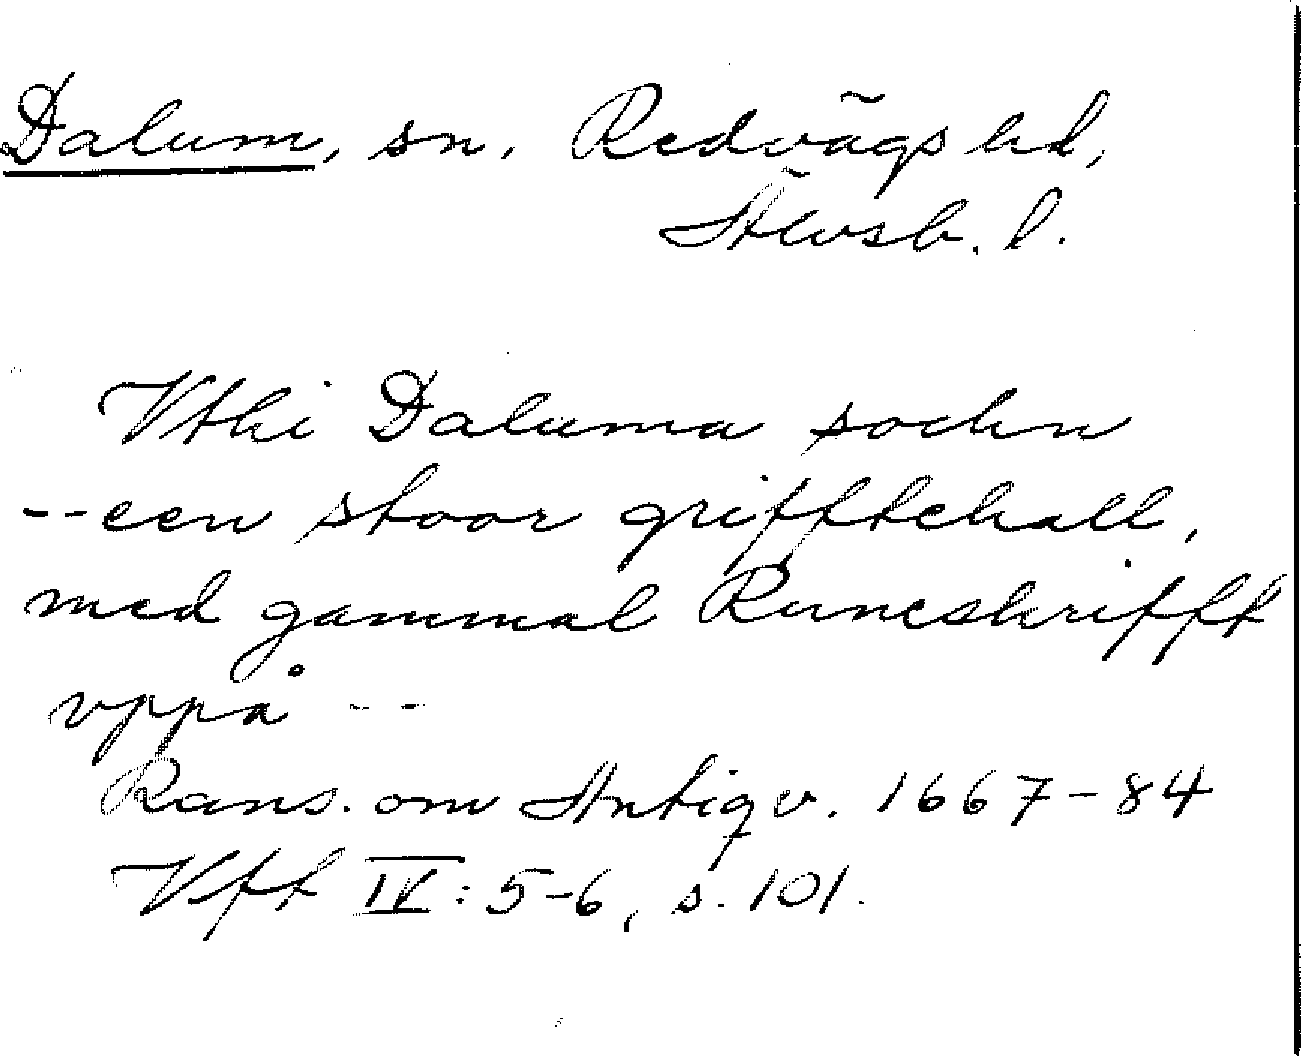 Dalum, sn, Redvägs hd,
Älvsb. l.
Vthi Daluma sochn
--een stoor griffttehall,
med gammal Runeskrifft
vppå --
Rans. om Antiqv. 1667-84
Vft IV: 5-6, s. 101.